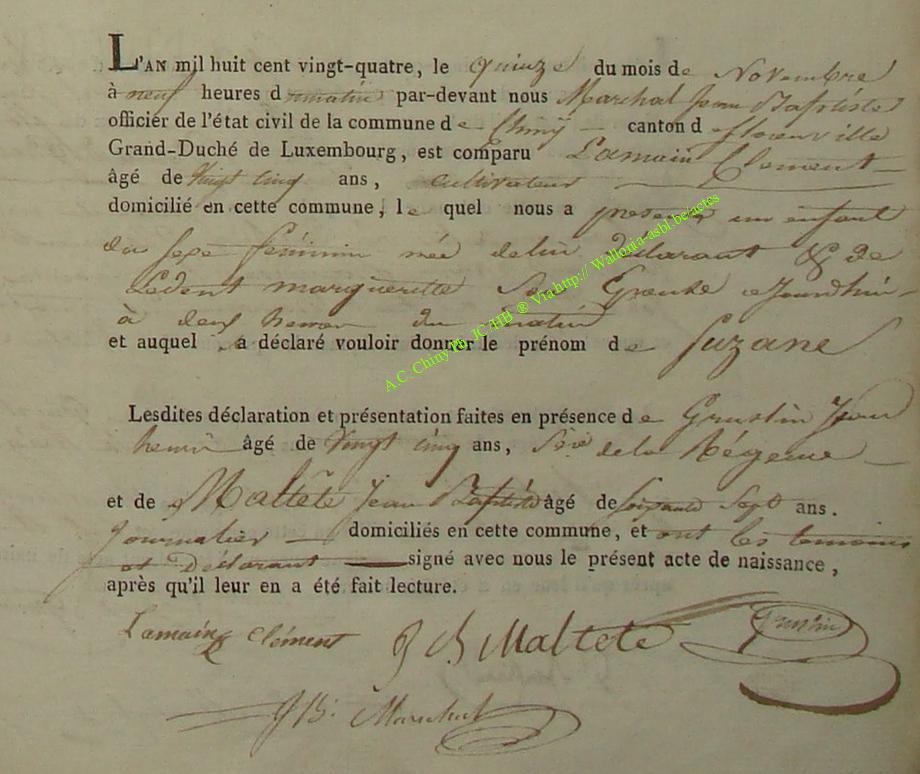 L'AN mil huit cent vingt-quatre, le quinze du mois de Novembre
à neuf heures d umatin par-devant nous Marchal Jean Baptiste
officiér de l'état civil de la commune d e Chiny canton d e florenville
Grand-Duché de Luxembourg, est comparu Lamain Clement
âgé de Vingt cinq ans, cultivateur
domicilié en cette commune, le quel nous a presenté un enfant
du sexe féminin née delui déclarant & de
Ledent margueritte Son Epouse
à deux heures du matin
et auquel a déclaré vouloir donner le prénom d e Suzane
Lesdites déclaration et présentation faites en présence d e Grustin Jean
henri âgé de Vingt cinq ans, Sre de la Régence
et de Maltête Jean Baptiste âgé de Soixante Sept ans.
Journalier domiciliés en cette commune, et ont les temoins
et Déclarant signé avec nous le présent acte de naissance,
après qu'il leur en a été fait lecture.
Lamain Clément J B Maltete Grustin
J B. Marchal
A.C. Chiny Ph. JC /HB ® Via http:// Wallonia-asbl.be/actes